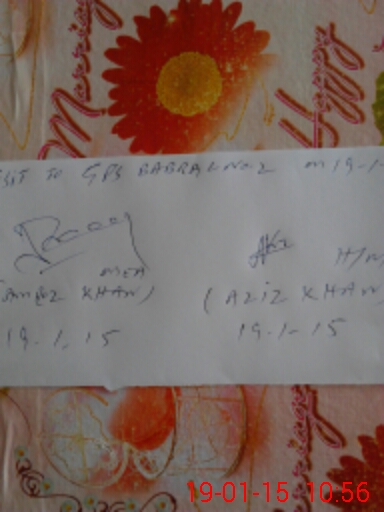 Marriage
Happy
SIT TO GPS BABRAL NO-2 on 19-1-
MEA
KHAN)
19.1.15
H/M
(AZIZ KHAN
19-1-15
Marriage
19-01-15 10.56